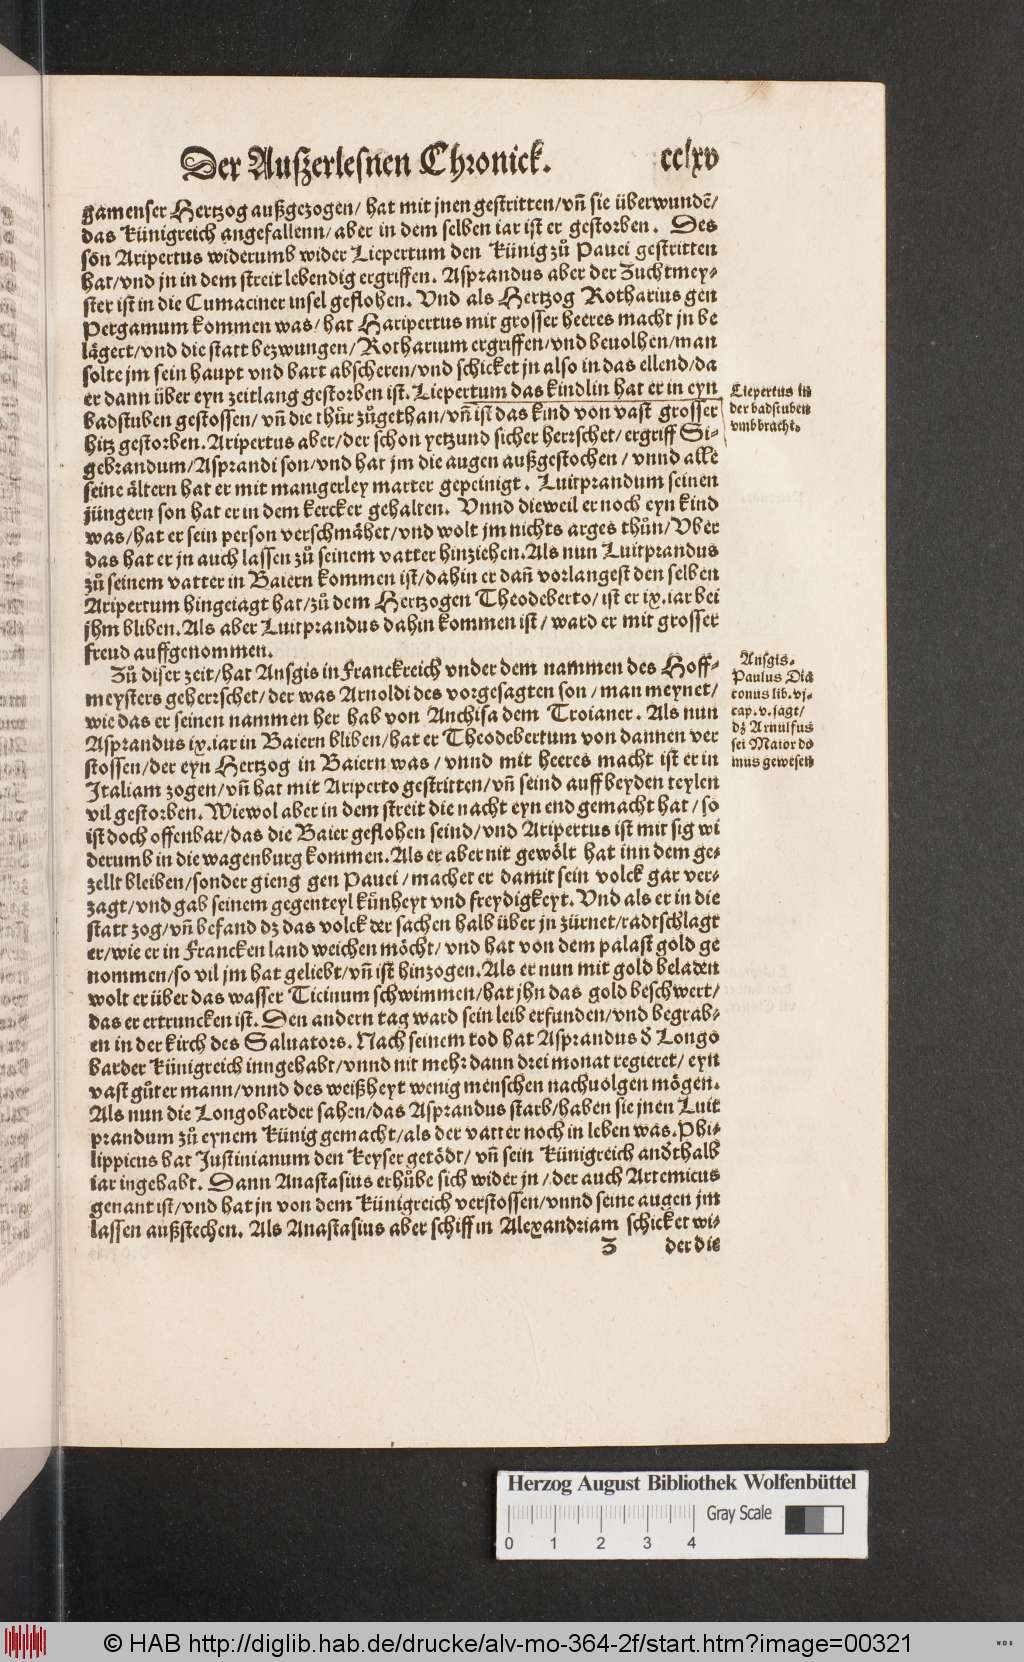 Der Auszerlesnen Chronick. cclxv
gamenser Hertzog außgezogen/ hat mit jnen gestritten/vñ sie überwundẽ/
das Künigreich angefallenn/ aber in dem selben iar ist er gestorben. Des
sōn Aripertus widerumb wider Liepertum den Künig zů Pauei gestritten
hat/vnd jn in dem streit lebendig ergriffen. Asprandus aber der Zuchtmey-
ster ist in die Cumaciner insel geflohen. Vnd als Hertzog Rotharius gen
Pergamum kommen was/ hat Haripertus mit grosser heeres macht jn be
lägert/vnd die statt bezwungen/ Rotharium ergriffen/vnd beuolhen/man
solte jm sein haupt vnd bart abscheren/vnd schicket jn also in das ellend/da
er dann über eyn zeitlang gestorben ist. Liepertum das kindlin hat er in eyn
badstuben gestossen/ vñ die thür zůgethan/vñ ist das kind von vast grosser
hitz gestorben. Aripertus aber/der schon yetzund sicher herrschet/ ergriff Si-
gebrandum/Asprandi son/vnd hat jm die augen außgestochen/ vnnd alle
seine ältern hat er mit manigerley marter gepeinigt. Luitprandum seinen
jüngern son hat er in dem kercker gehalten. Vnnd dieweil er noch eyn kind
was/hat er sein person verschmähet/vnd wolt jm nichts arges thůn/Vber
das hat er jn auch lassen zů seinem vatter hinziehen. Als nun Luitprandus
zů seinem vatter in Baiern kommen ist/dahin er dañ vorlangest den selben
Aripertum hingeiagt hat/zů dem Hertzogen Theodeberto/ ist er ix. iar bei
jhm bliben. Als aber Luitprandus dahin kommen ist/ ward er mit grosser
freud auffgenommen.
Zů diser zeit/hat Ansgis in Franckreich vnder dem nammen des Hoff-
meysters geherrschet/der was Arnoldi des vorgesagten son/man meynet/
wie das er seinen nammen her hab von Anchisa dem Troianer. Als nun
Asprandus ix. iar in Baiern bliben/hat er Theodebertum von dannen ver
stossen/der eyn Hertzog in Baiern was/ vnnd mit heeres macht ist er in
Italiam zogen/vñ hat mit Ariperto gestritten/vñ seind auff beyden teylen
vil gestorben. Wiewol aber in dem streit die nacht eyn end gemacht hat/ so
ist doch offenbar/das die Baier geflohen seind/vnd Aripertus ist mit sig wi
derumb in die wagenburg kommen. Als er aber nit gewölt hat inn dem ge-
zellt bleiben/sonder gieng gen Pauei/machet er damit sein volck gar ver-
zagt/vnd gab seinem gegenteyl künheyt vnd freydigkeyt. Vnd als er in die
statt zog/vñ befand dz das volck der sachen halb über jn zürnet/radtschlagt
er/wie er in Francken land weichen möcht/ vnd hat von dem palast gold ge
nommen/so vil jm hat geliebt/vñ ist hinzogen. Als er nun mit gold beladen
wolt er über das wasser Ticinum schwimmen/hat jhn das gold beschwert/
das er ertruncken ist. Den andern tag ward sein leib erfunden/vnd begrab-
en in der kirch des Saluators. Nach seinem tod hat Asprandus ď Longo
barder Künigreich inngehabt/vnnd nit mehr dann drei monat regieret/ eyn
vast gůter mann/vnnd des weißheyt wenig menschen nachuolgen mögen.
Als nun die Longobarder sahen/das Asprandus starb/haben sie jnen Luit
prandum zů eynem Künig gemacht/als der vatter noch in leben was. Phi-
lippicus hat Justinianum den Keyser getödt/ vñ sein Künigreich anďthalb
iar ingehabt. Dann Anastasius erhůbe sich wider jn/ der auch Artemicus
genant ist/vnd hat jn von dem Künigreich verstossen/vnnd seine augen jm
lassen außstechen. Als Anastasius aber schiff in Alexandriam schicket wi-
Z der die
Liepertus in
der badstuben
vmbbracht.
Ansgis.
Paulus Dia
conus lib. vj.
cap. v. sagt/
dz Arnulfus
sei Maior do
mus gewesen
Herzog August Bibliothek Wolfenbüttel
Gray Scale
0 1 2 3 4
© HAB http://diglib.hab.de/drucke/alv-mo-364-2f/start.htm?image=00321